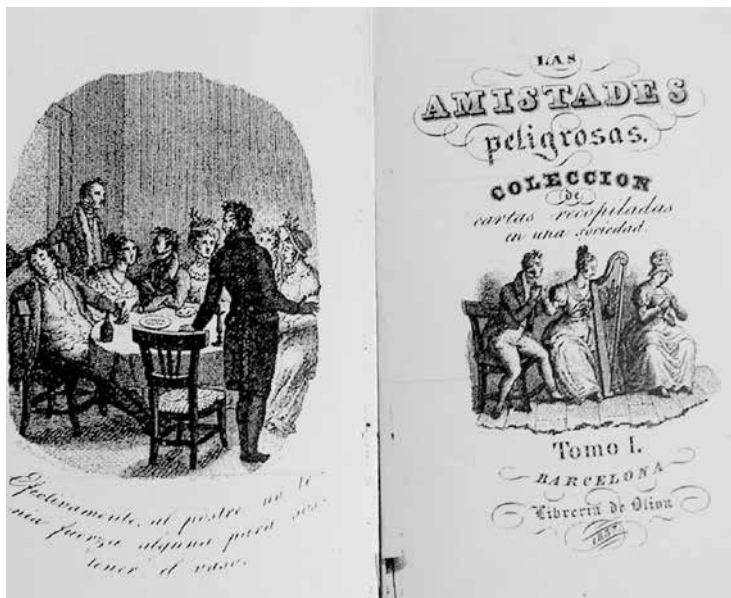 Efectivamente, al postre no te-
nia fuerza alguna para sos-
tener el vaso.
LAS
AMISTADES
peligrosas.
COLECCION
de
cartas recopiladas
en una sociedad.
Tomo I.
BARCELONA
Librería de Oliva